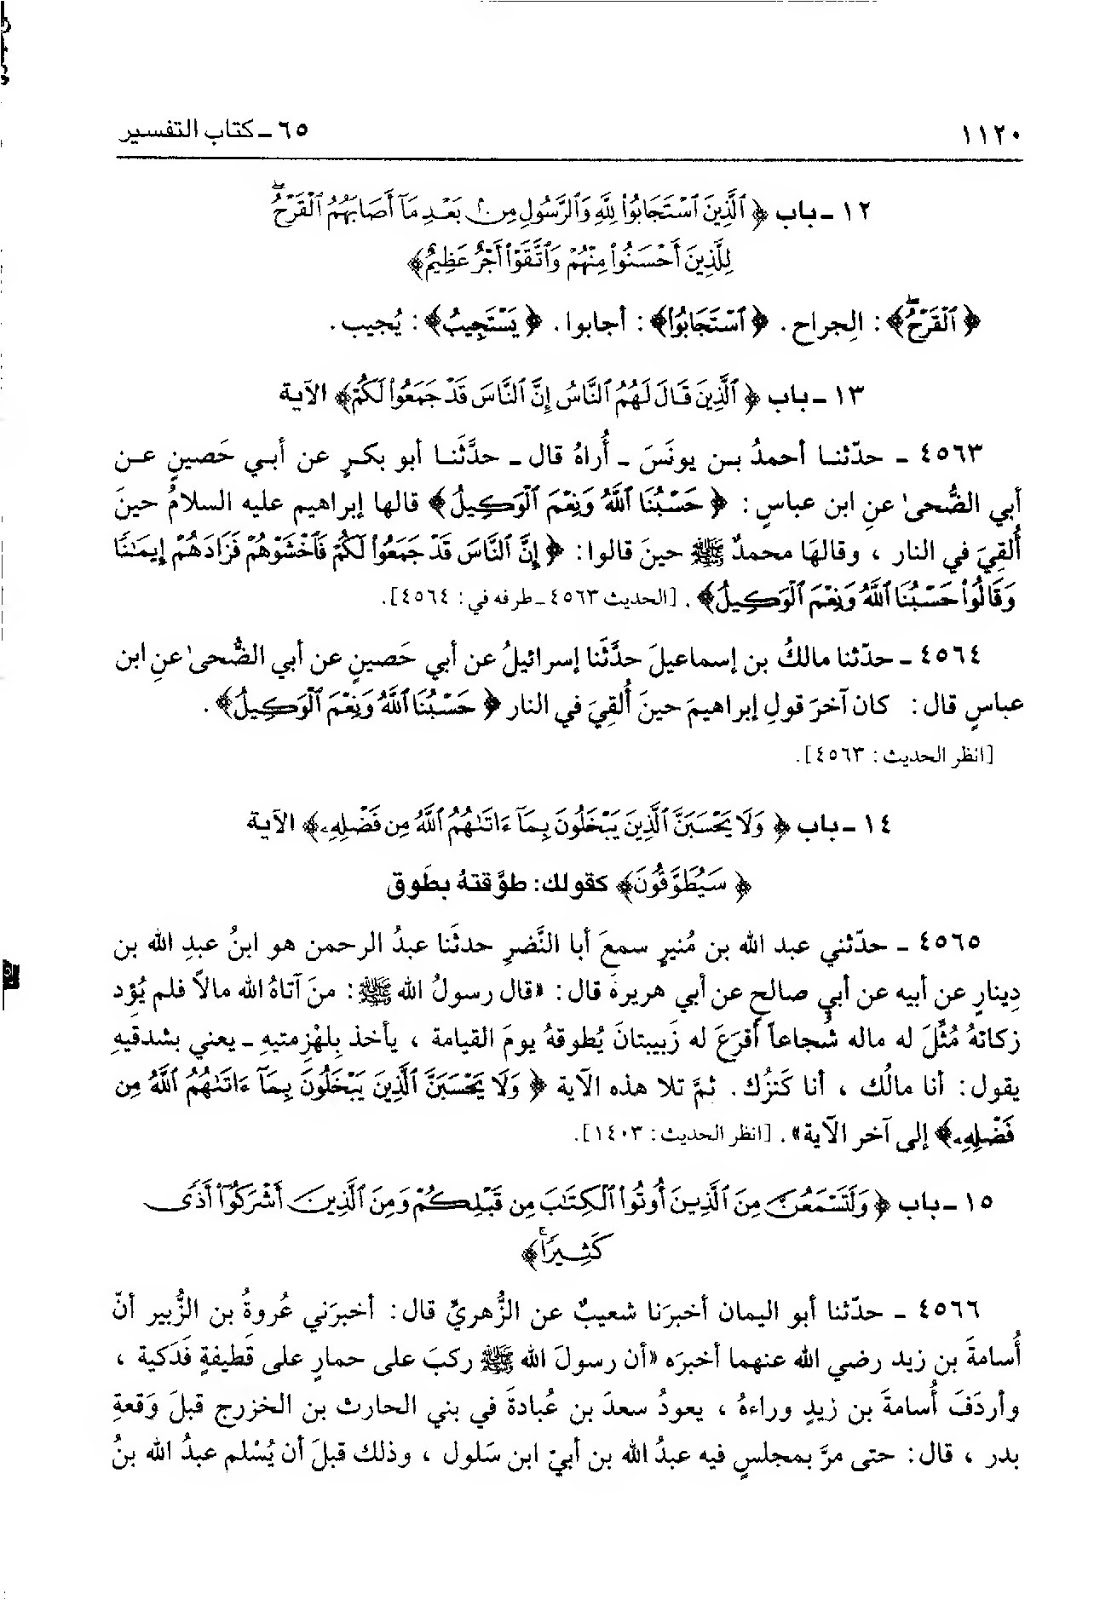 ١١٢٠
٦٥ ـ كتاب التفسير
١٢ ـ باب ﴿ ٱلَّذِينَ ٱسْتَجَابُوا۟ لِلَّهِ وَٱلرَّسُولِ مِنۢ بَعْدِ مَآ أَصَابَهُمُ ٱلْقَرْحُ ۚ
لِلَّذِينَ أَحْسَنُوا۟ مِنْهُمْ وَٱتَّقَوْا۟ أَجْرٌ عَظِيمٌ﴾
﴿ ٱلْقَرْحُ ﴾ : الجراح . ﴿ ٱسْتَجَابُوا۟﴾ : أجابوا . ﴿ يَسْتَجِيبُ﴾ : يُجيب .
١٣ ـ باب ﴿ ٱلَّذِينَ قَالَ لَهُمُ ٱلنَّاسُ إِنَّ ٱلنَّاسَ قَدْ جَمَعُوا۟ لَكُمْ﴾ الآية
٤٥٦٣ ـ حدّثنا أحمدُ بن يونَسَ ـ أُراهُ قال ـ حدَّثَنا أبو بكرٍ عن أبي حَصينٍ عن
أبي الضُّحىٰ عنِ ابن عباسٍ : ﴿ حَسْبُنَا ٱللَّهُ وَنِعْمَ ٱلْوَكِيلُ﴾ قالها إبراهيم عليه السلامُ حينَ
أُلقِيَ في النار ، وقالهَا محمدٌ ﷺ حينَ قالوا : ﴿ إِنَّ ٱلنَّاسَ قَدْ جَمَعُوا۟ لَكُمْ فَٱخْشَوْهُمْ فَزَادَهُمْ إِيمَٰنًا
وَقَالُوا۟ حَسْبُنَا ٱللَّهُ وَنِعْمَ ٱلْوَكِيلُ﴾ . [الحديث ٤٥٦٣ ـ طرفه في : ٤٥٦٤].
٤٥٦٤ ـ حدّثنا مالكُ بن إسماعيلَ حدَّثَنا إسرائيلُ عن أبي حَصينٍ عن أبي الضُّحىٰ عنِ ابن
عباسٍ قال : كان آخرَ قولِ إبراهيمَ حينَ أُلقِيَ في النار ﴿ حَسْبُنَا ٱللَّهُ وَنِعْمَ ٱلْوَكِيلُ﴾ .
[انظر الحديث : ٤٥٦٣].
١٤ ـ باب ﴿ وَلَا يَحْسَبَنَّ ٱلَّذِينَ يَبْخَلُونَ بِمَآ ءَاتَىٰهُمُ ٱللَّهُ مِن فَضْلِهِۦ﴾ الآية
﴿ سَيُطَوَّقُونَ﴾ كقولك : طوَّقتهُ بطَوق
٤٥٦٥ ـ حدّثني عبد الله بن مُنيرٍ سمعَ أبا النَّضرِ حدثَنا عبدُ الرحمن هو ابنُ عبدِ الله بن
دِينارٍ عن أبيه عن أبي صالحٍ عن أبي هريرةَ قال : «قال رسولُ الله ﷺ : منَ آتاهُ الله مالاً فلم يُؤد
زكاتهُ مُثِّلَ له ماله شُجاعاً أقرَعَ له زَبيبتانَ يُطوقهُ يومَ القيامة ، يأخذ بِلهْزِمتيهِ ـ يعني بشدقيهِ
يقول : أنا مالُك ، أنا كَنزُك . ثمَّ تلا هذه الآية ﴿ وَلَا يَحْسَبَنَّ ٱلَّذِينَ يَبْخَلُونَ بِمَآ ءَاتَىٰهُمُ ٱللَّهُ مِن
فَضْلِهِۦ﴾ إلى آخر الآية» . [انظر الحديث : ١٤٠٣].
١٥ ـ باب ﴿ وَلَتَسْمَعُنَّ مِنَ ٱلَّذِينَ أُوتُوا۟ ٱلْكِتَٰبَ مِن قَبْلِكُمْ وَمِنَ ٱلَّذِينَ أَشْرَكُوٓا۟ أَذًى
كَثِيرًا ۚ﴾
٤٥٦٦ ـ حدّثنا أبو اليمان أخبرَنا شعيبٌ عن الزُّهريِّ قال : أخبرَني عُروةُ بن الزُّبير أنّ
أُسامةَ بن زيد رضي الله عنهما أخبرَه «أن رسولَ الله ﷺ ركبَ على حمارٍ على قَطيفةٍ فَدَكية ،
وأردَفَ أُسامةَ بن زيدٍ وراءهُ ، يعودُ سعدَ بن عُبادةَ في بني الحارث بن الخزرج قبلَ وَقعةِ
بدر ، قال : حتى مرَّ بمجلسٍ فيه عبدُ الله بن أبيّ ابن سَلول ، وذلك قبلَ أن يُسْلم عبدُ الله بنُ